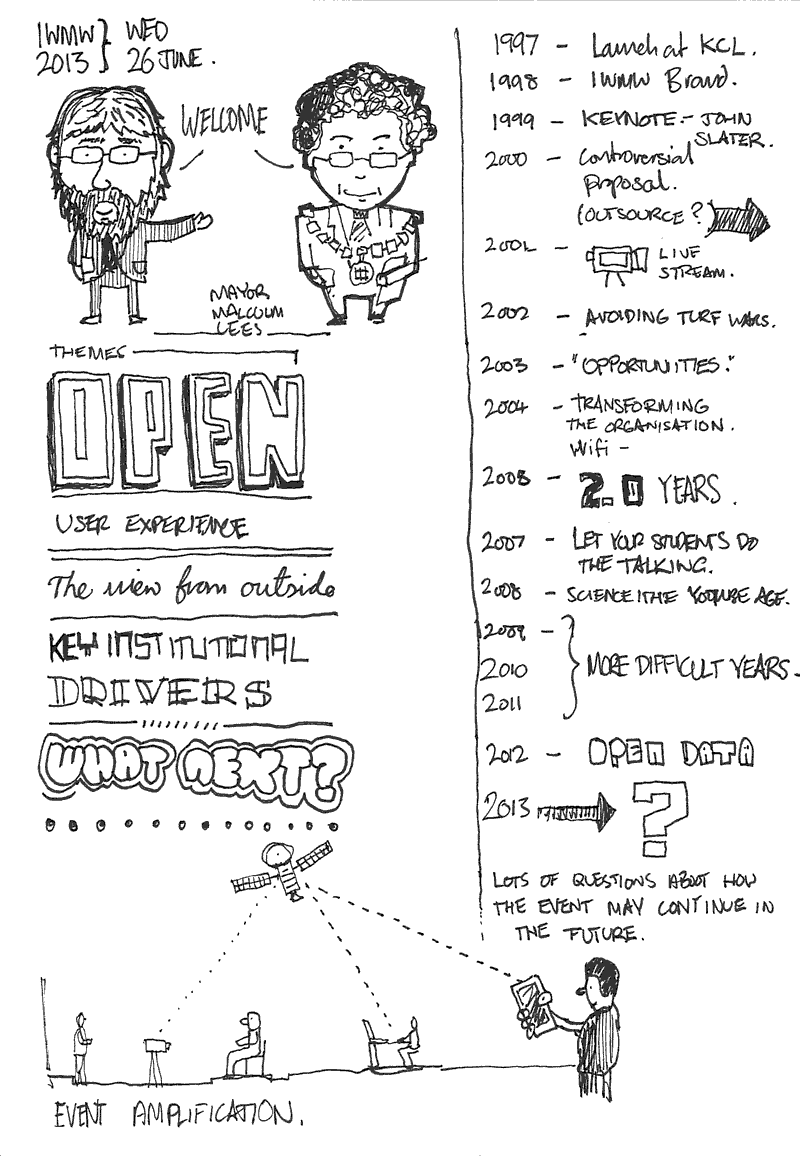 IWMW } WED
2013 } 26 JUNE.
WELCOME
MAYOR
MALCOLM
LEES
THEMES
OPEN
USER EXPERIENCE
The view from outside
KEY INSTITUTIONAL
DRIVERS
WHAT NEXT?
EVENT AMPLIFICATION.
1997 - Launch at KCL.
1998 - IWMW Brand.
1999 - KEYNOTE:- JOHN
SLATER.
2000 - Controversial
proposal.
(OUTSOURCE?)
2001 - LIVE
STREAM.
2002 - AVOIDING TURF WARS.
2003 - "OPPORTUNITIES."
2004 - TRANSFORMING
THE ORGANISATION.
Wifi -
- 2.0 YEARS.
2007 - LET YOUR STUDENTS DO
THE TALKING.
2008 - SCIENCE I THE YOUTUBE AGE.
2009 -
2010 } MORE DIFFICULT YEARS -
2011
2012 - OPEN DATA
2013 ?
LOTS OF QUESTIONS ABOUT HOW
THE EVENT MAY CONTINUE IN
THE FUTURE.